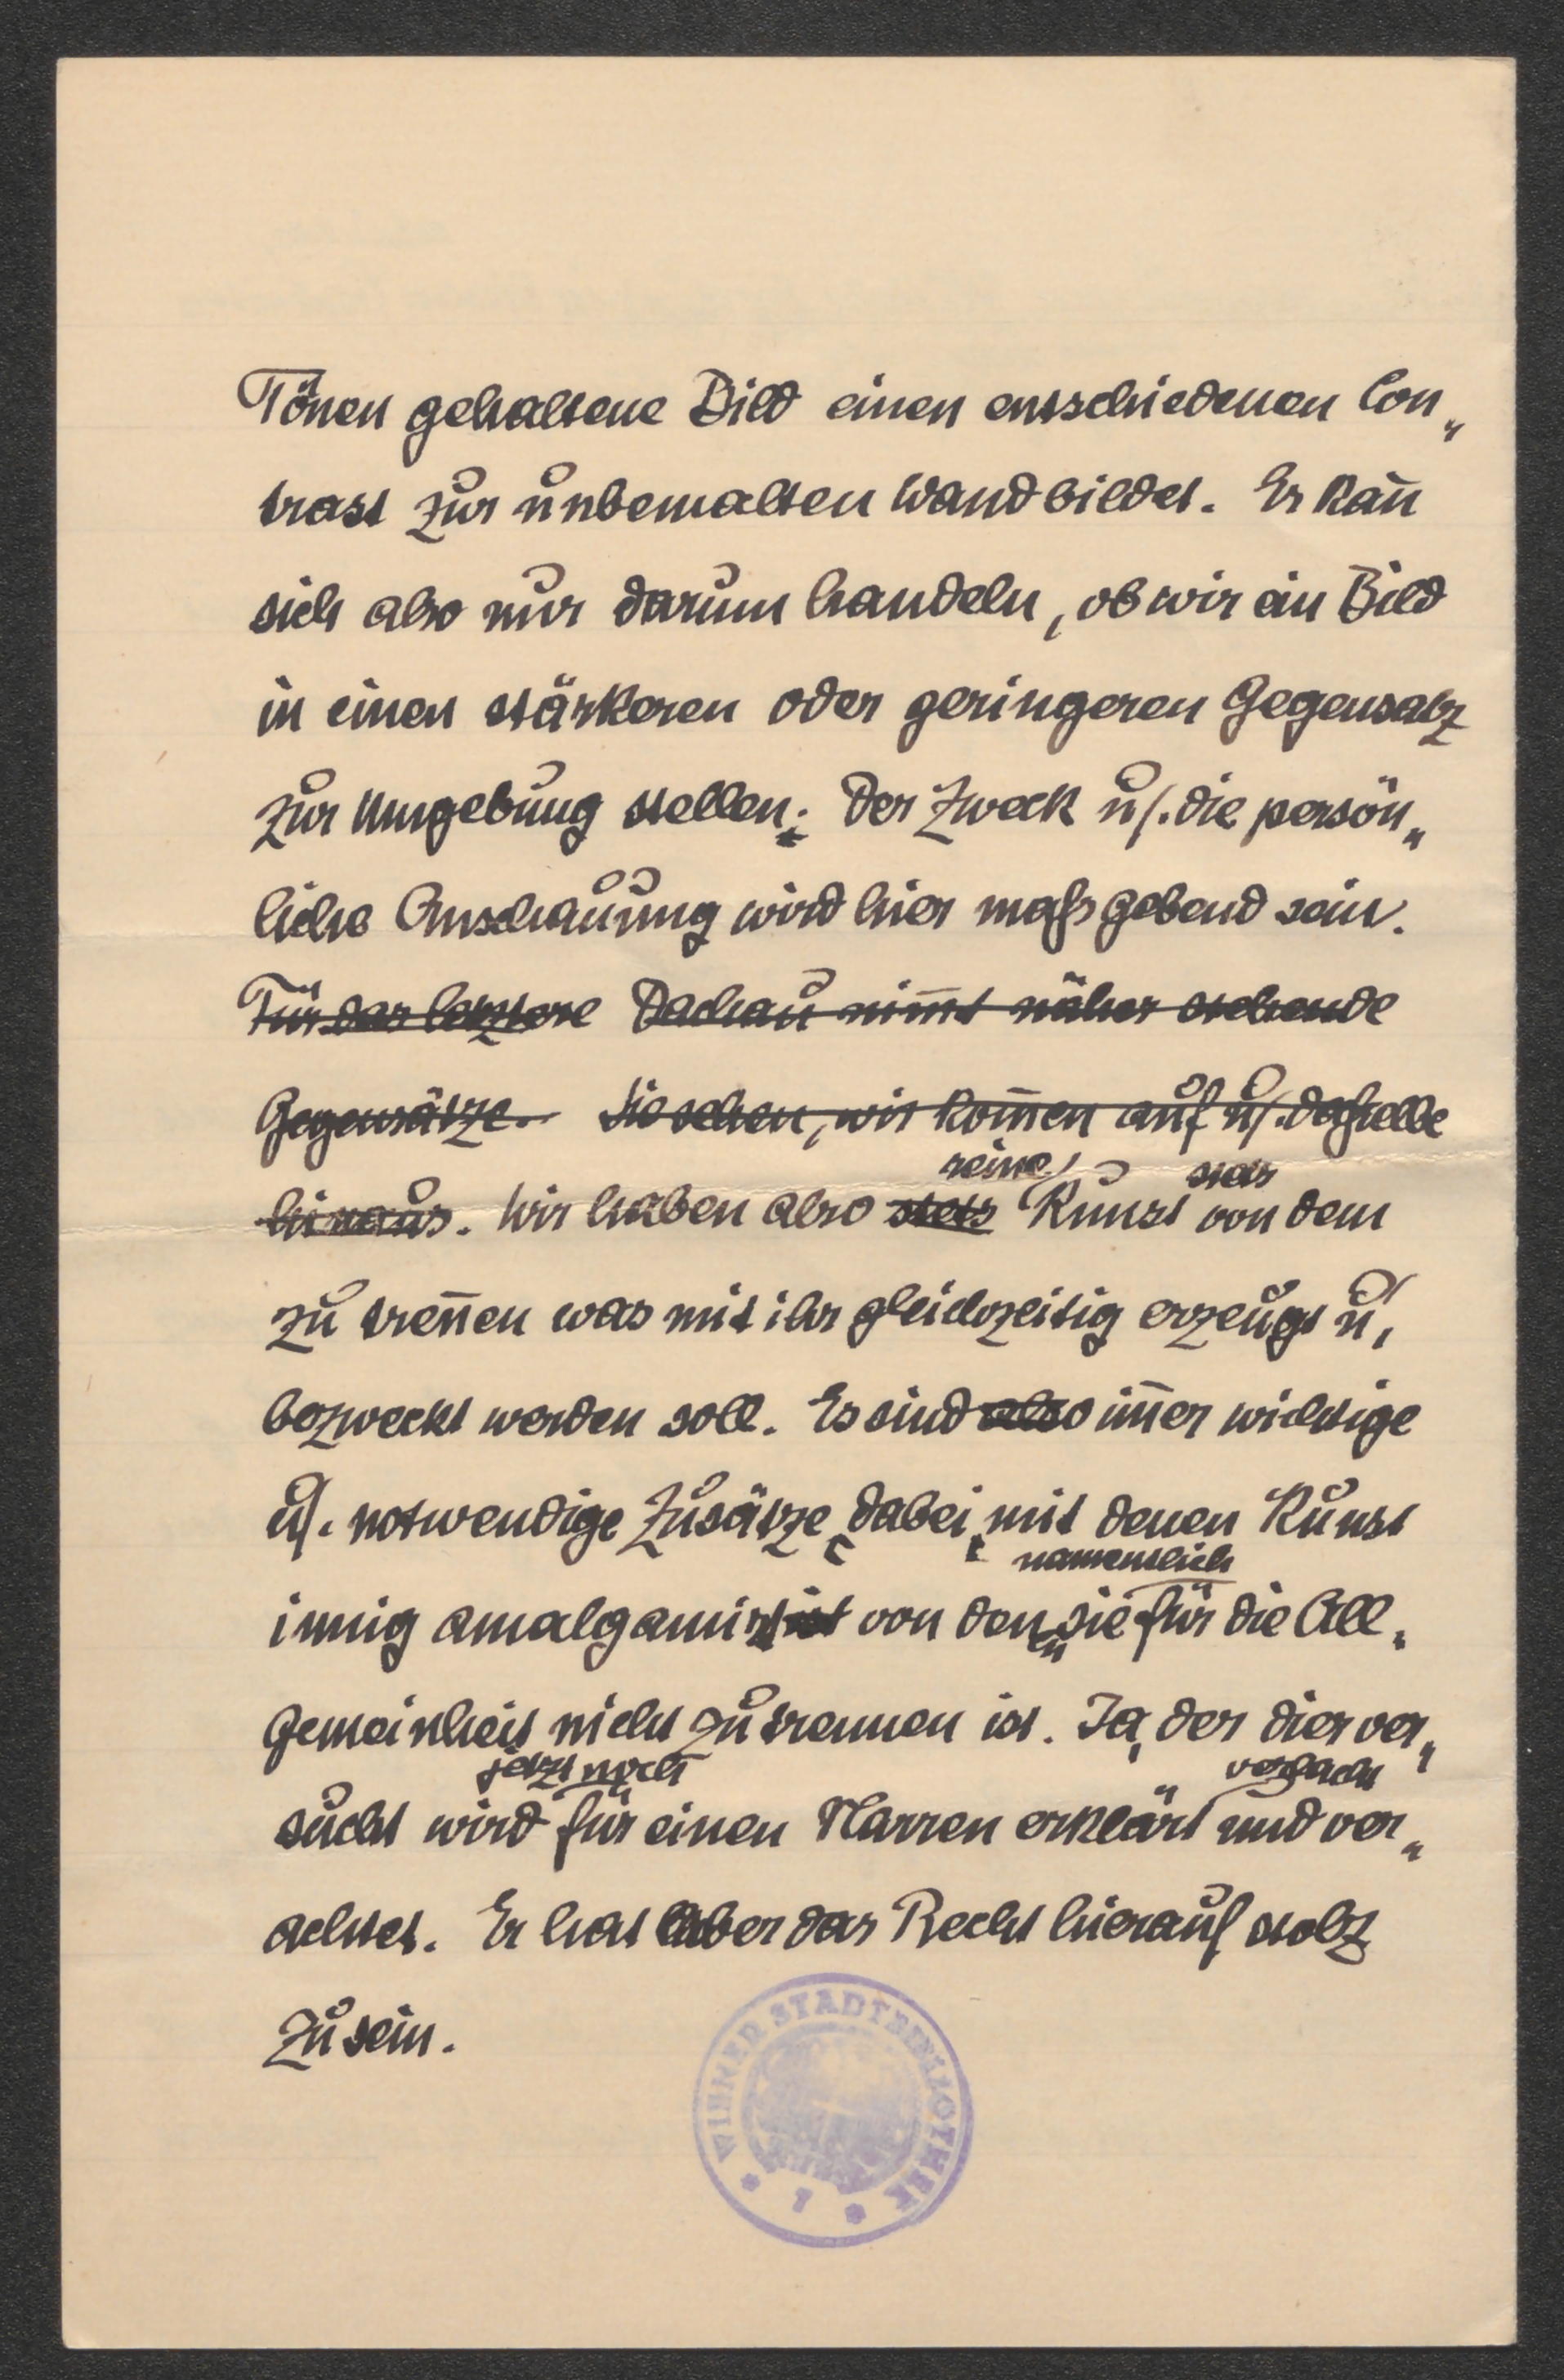 Tönen gehaltene Bild einen entschiedenen Con„
trast zur unbemalten Wand bildet. Er kan̄
sich also nur darum handeln, ob wir ein Bild
in einen stärkeren oder geringeren Gegensatz
zur Umgebung stellen; Der Zweck u. die persön„
liche Anschauung wird hier maßgebend sein.
Für das letztere Dachau nim̄t näher stehende
Gegensätze. Sie sehen, wir kom̄en auf u. dasselbe
reine stets
hinaus. Wir haben also stets Kunst von dem
zu tren̄en was mit ihr gleichzeitig erzeugt u.
bezweckt werden soll. Es sind also im̄er wichtige
u. notwendige Zusätze dabei, mit denen Kunst
namentlich
innig amalgamirt ist von denen sie für die All„
gemeinheit nicht zu trennen ist. Ja, der dies ver„
jetzt noch verlacht
sucht wird für einen Narren erklärt und ver„
achtet. Er hat aber das Recht hierauf stolz
zu sein.
WIENER STADTBIBLIOTHEK